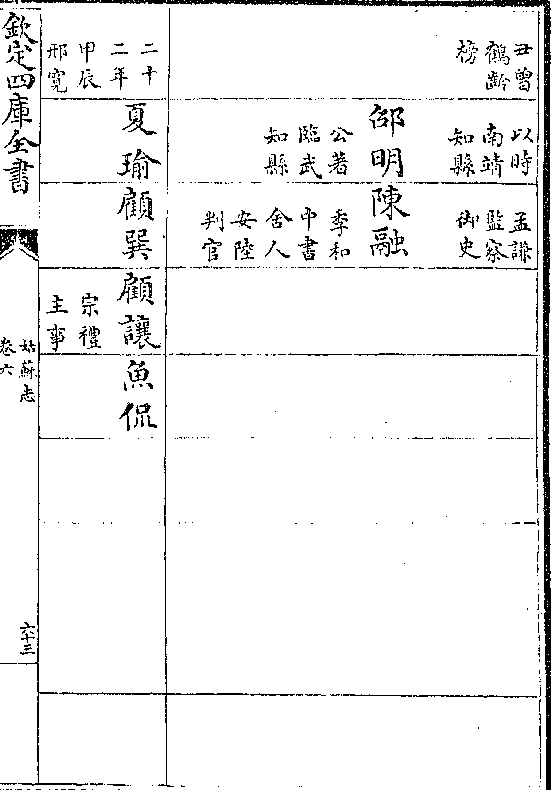 丑曾
鶴齡
榜
以時
南靖
知縣
孟謙
監察
御史
邵明
公著
臨武
知縣
陳融
季和
中書
舍人
安陸
判官
二十
二年
甲辰
邢寛
夏瑜
顧巽
顧讓
宗禮
主事
魚侃
欽定四庫全書
姑蘇志
卷六
六十三